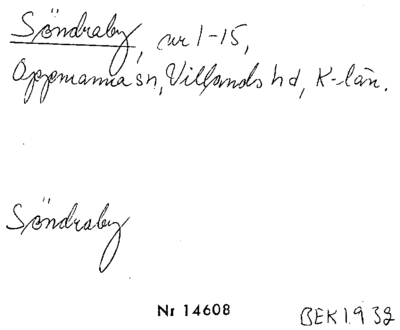 Söndraby, nr 1-15,
Oppmanna sn, Villands hd, K-län.
Söndraby
Nr 14608
BEK 1932